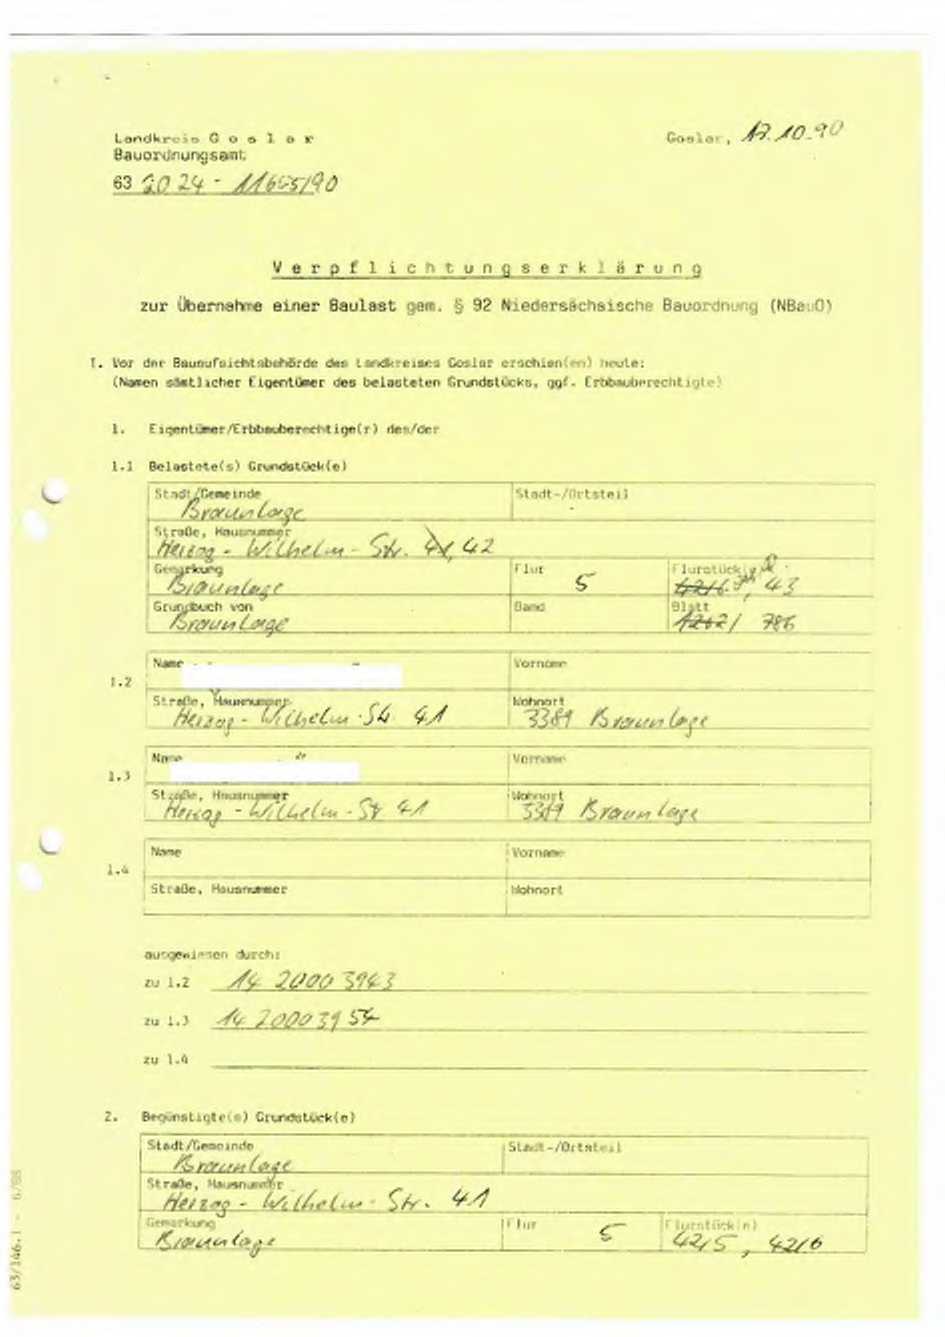 Landkreis G o s l a r
Goslar, 17.10.90
Bauordnungsamt
63 20.24 - 11665/90
V e r p f l i c h t u n g s e r k l ä r u n g
zur Übernahme einer Baulast gem. § 92 Niedersächsische Bauordnung (NBauO)
I. Vor der Bauaufsichtsbehörde des Landkreises Goslar erschien(en) heute:
(Namen sämtlicher Eigentümer des belasteten Grundstücks, ggf. Erbbauberechtigte)
1. Eigentümer/Erbbauberechtige(r) des/der
1.1 Belastete(s) Grundstück(e)
Stadt/Gemeinde Stadt-/Ortsteil
Braunlage
Straße, Hausnummer
Herzog-Wilhelm-Str. 41, 42
Gemarkung Flur Flurstück(e)
Braunlage 5 42/6, 43
Grundbuch von Band Blatt
Braunlage 1262/ 786
1.2 Name Vorname
Straße, Hausnummer Wohnort
Herzog-Wilhelm-Str. 41 3389 Braunlage
1.3 Name Vorname
Straße, Hausnummer Wohnort
Herzog-Wilhelm-Str 41 3389 Braunlage
1.4 Name Vorname
Straße, Hausnummer Wohnort
ausgewiesen durch:
zu 1.2 14 2000 3943
zu 1.3 14 2000 39 54
zu 1.4
2. Begünstigte(s) Grundstück(e)
Stadt/Gemeinde Stadt-/Ortsteil
Braunlage
Straße, Hausnummer
Herzog-Wilhelm-Str. 41
Gemarkung Flur Flurstück(e)
Braunlage 5 42/5, 42/6
63/146.1 - 6/88